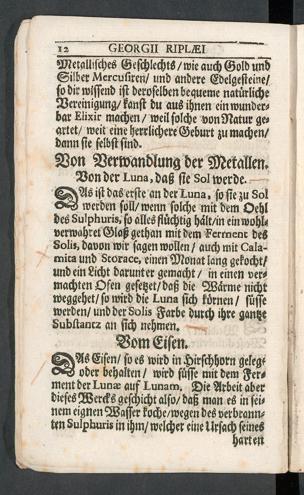 12 GEORGII RIPLÆI
Metallisches Geschlechts / wie auch Gold und
Silber Mercusiren / und andere Edelgesteine /
so dir wissend ist deroselben bequeme natürliche
Vereinigung / kanst du aus ihnen ein wunder-
bar Elixir machen / weil solche von Natur ge-
artet / weit eine herrlichere Geburt zu machen /
dann sie selbst sind.
Von Verwandlung der Metallen.
Von der Luna, daß sie Sol werde.
DAs ist das erste an der Luna, so sie zu Sol
werden soll / wenn solche mit dem Oehl
des Sulphuris, so alles flüchtig hält / in ein wohl-
verwahret Glaß gethan mit dem Ferment des
Solis, davon wir sagen wollen / auch mit Cala-
mica und Storace, einen Monat lang gekocht /
und ein Licht darunter gemacht / in einen ver-
machten Ofen gesetzt / daß die Wärme nicht
weggehet / so wird die Luna sich körnen / süsse
werden / und der Solis Farbe durch ihre gantze
Substantz an sich nehmen.
Vom Eisen.
DAs Eisen / so es wird in Hirschhorn gelegt
oder behalten / wird süsse mit dem Fer-
ment der Lunæ auf Lunam. Die Arbeit aber
dieses Wercks geschicht also / daß man es in sei-
nem eignen Wasser koche / wegen des verbrann-
ten Sulphuris in ihm / welcher eine Ursach seines
harten